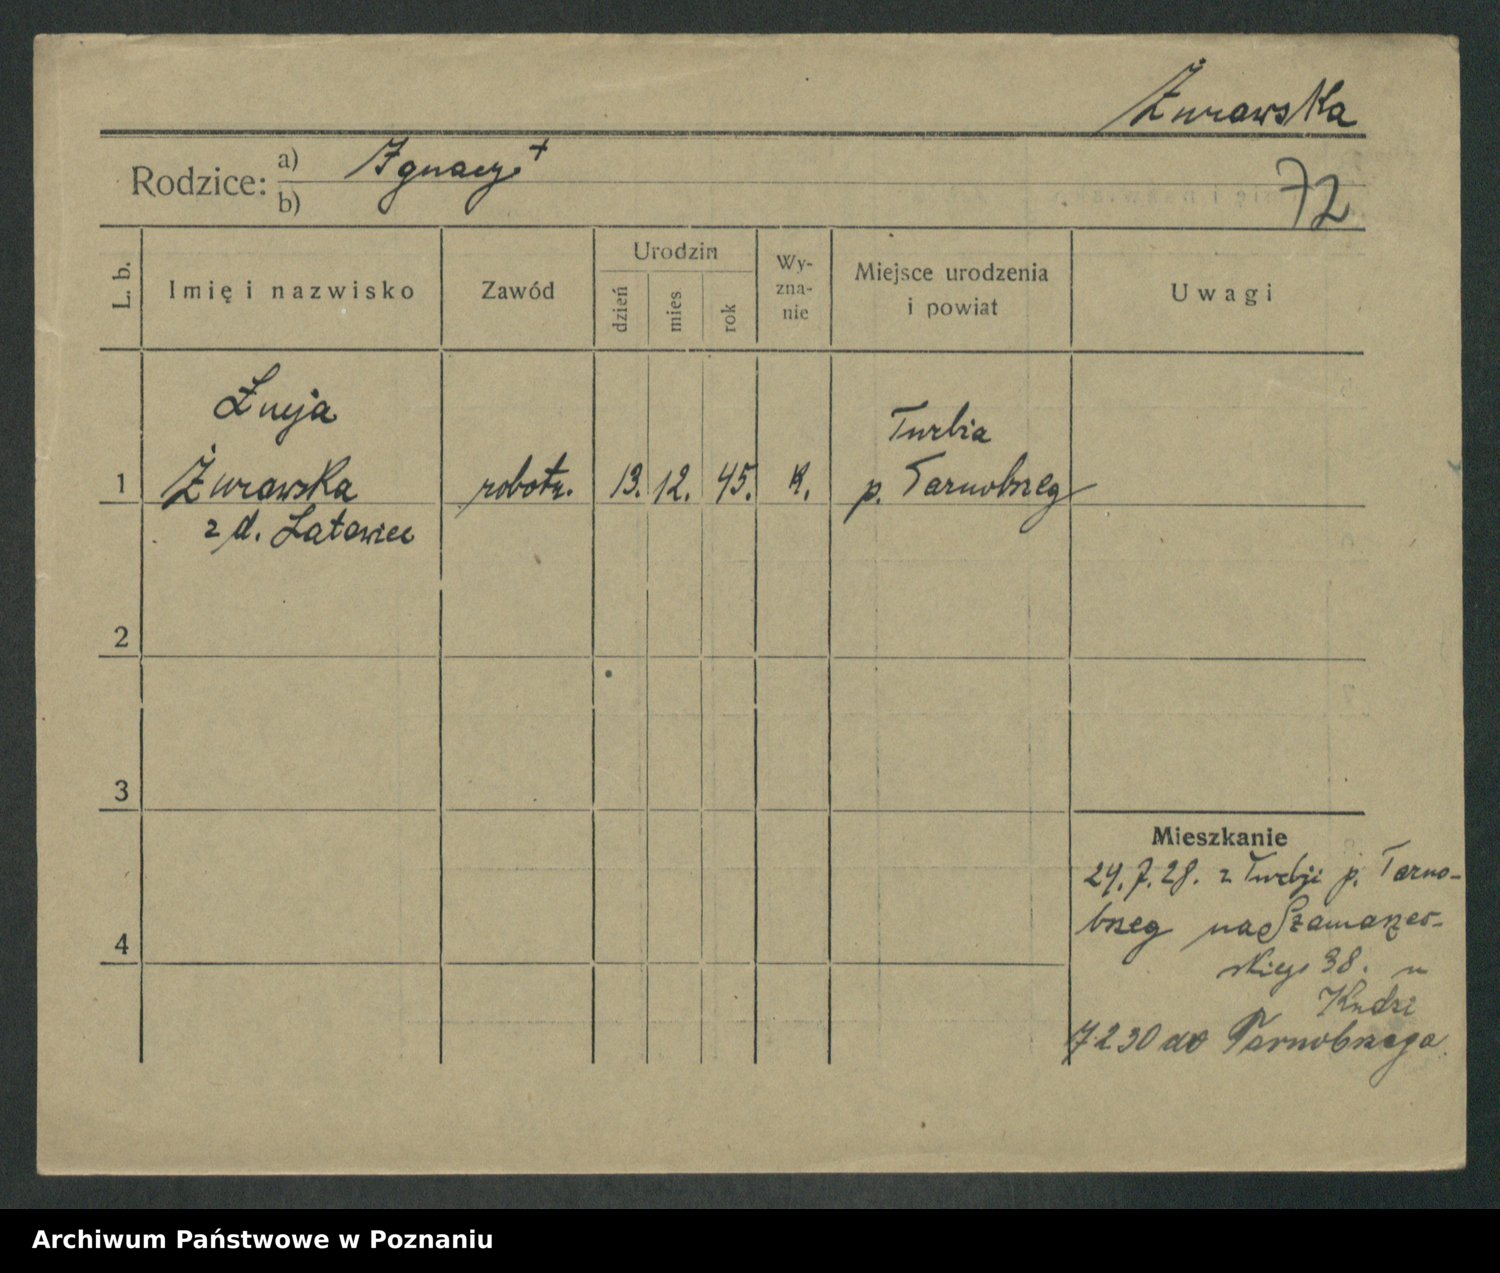 Żurawska
Rodzice: a) Ignacy +
b)
72
L. b.
Imię i nazwisko
Zawód
Urodzin
dzień
mies
rok
Wy-
zna-
nie
Miejsce urodzenia
i powiat
Uwagi
Łucja
1 Żurawska robotn. 13. 12. 45. K. Turbia
p. Tarnobrzeg
z d. Latawiec
2
3
4
Mieszkanie
24.7.28. z Turbji p. Tarno-
brzeg na Szamarzew-
skiego 38. u
7 2 30 do Tarnobrzega
Archiwum Państwowe w Poznaniu